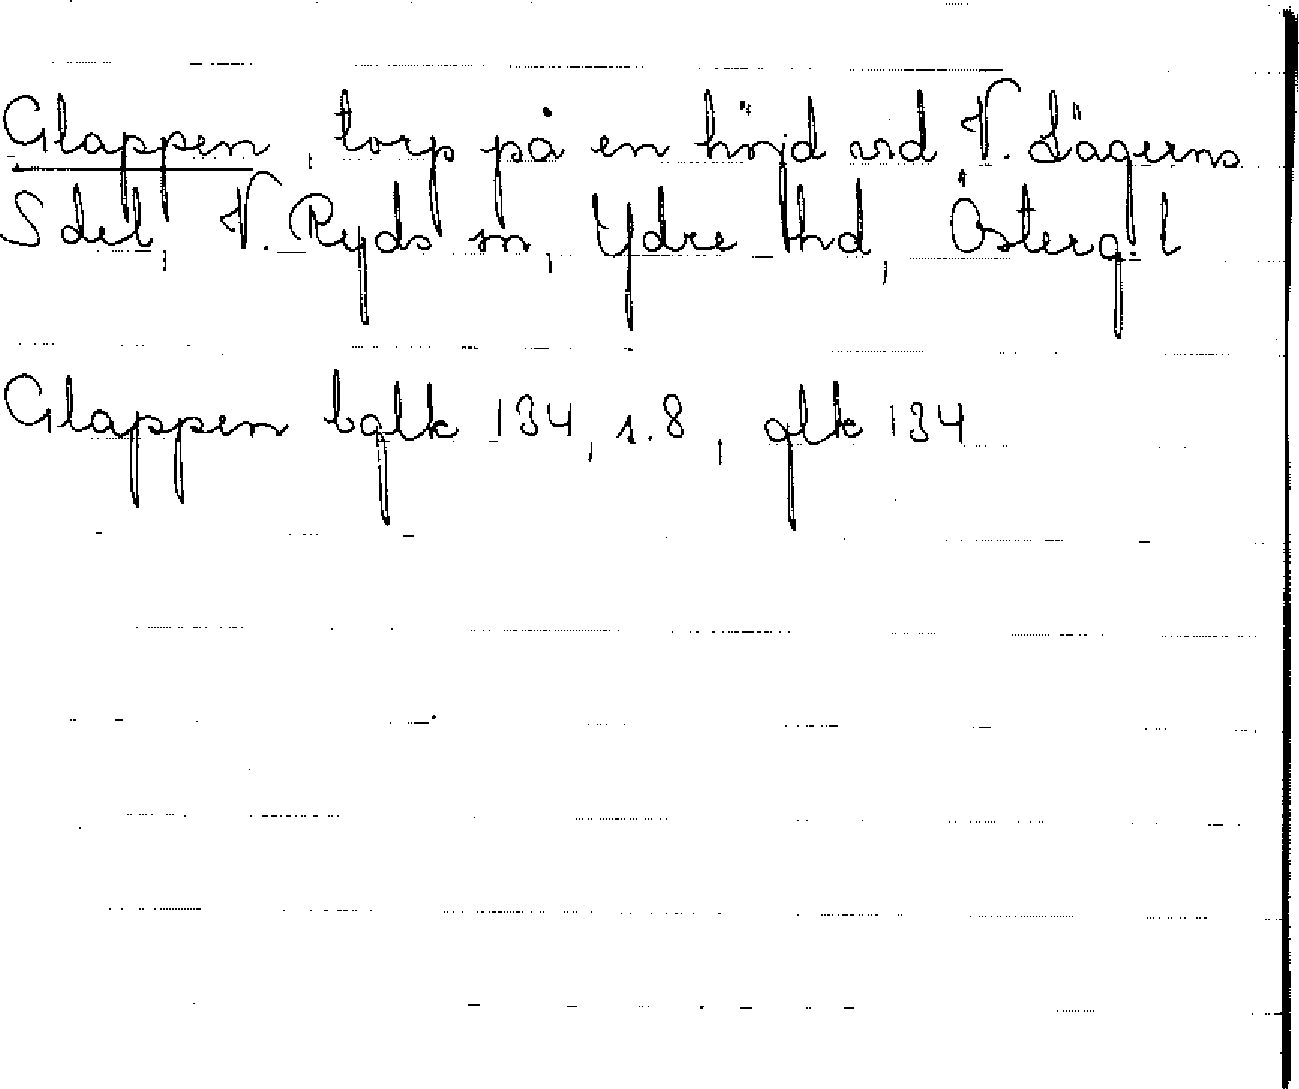 Glappen, torp på en höjd vid V. Lägerns
S del, V. Ryds sn, Ydre hd, Österg. l
Glappen bglk 134, s. 8, glk 134